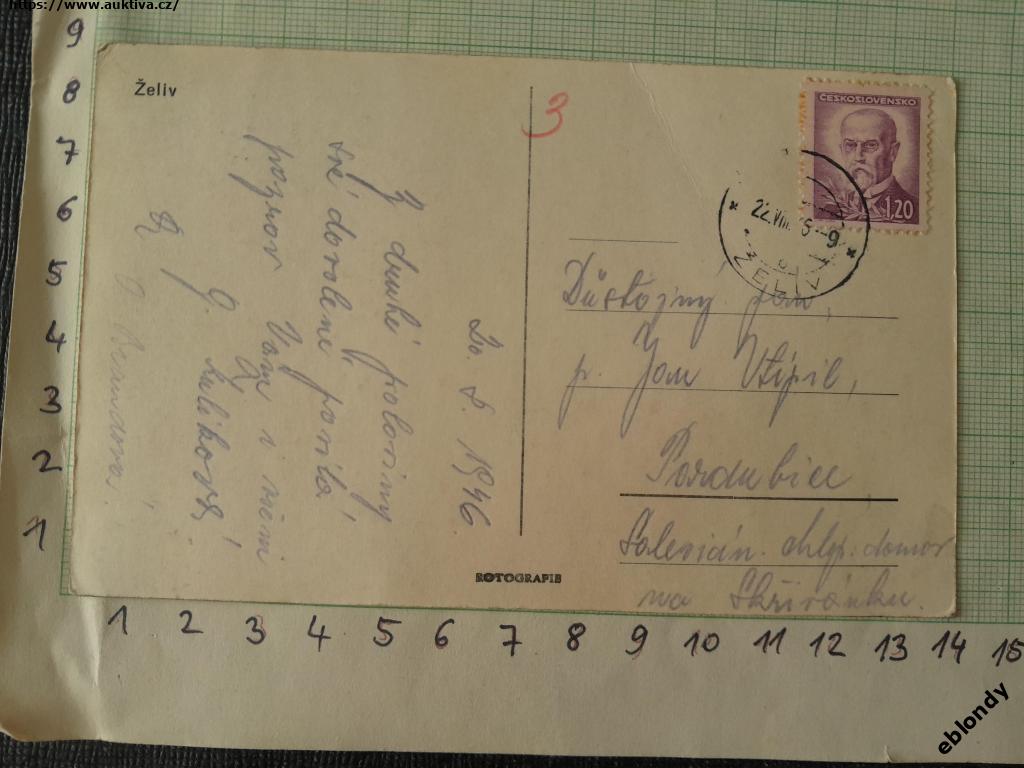 https://www.auktiva.cz/
Želiv
3
ČESKOSLOVENSKO
1,20
22.VIII. 6-9
ŽELIV
20. 8. 1946
Z druhé poloviny
své dovolené posílá
pozdrav Vám i všem
J. Kulíková
Důstojný pan,
p. Jan Vtípil,
Pardubice
Salesián. chlp. domov
na Skřivánku.
ROTOGRAFIE
9
8
7
6
5
4
3
2
1
1 2 3 4 5 6 7 8 9 10 11 12 13 14 15
eblondy